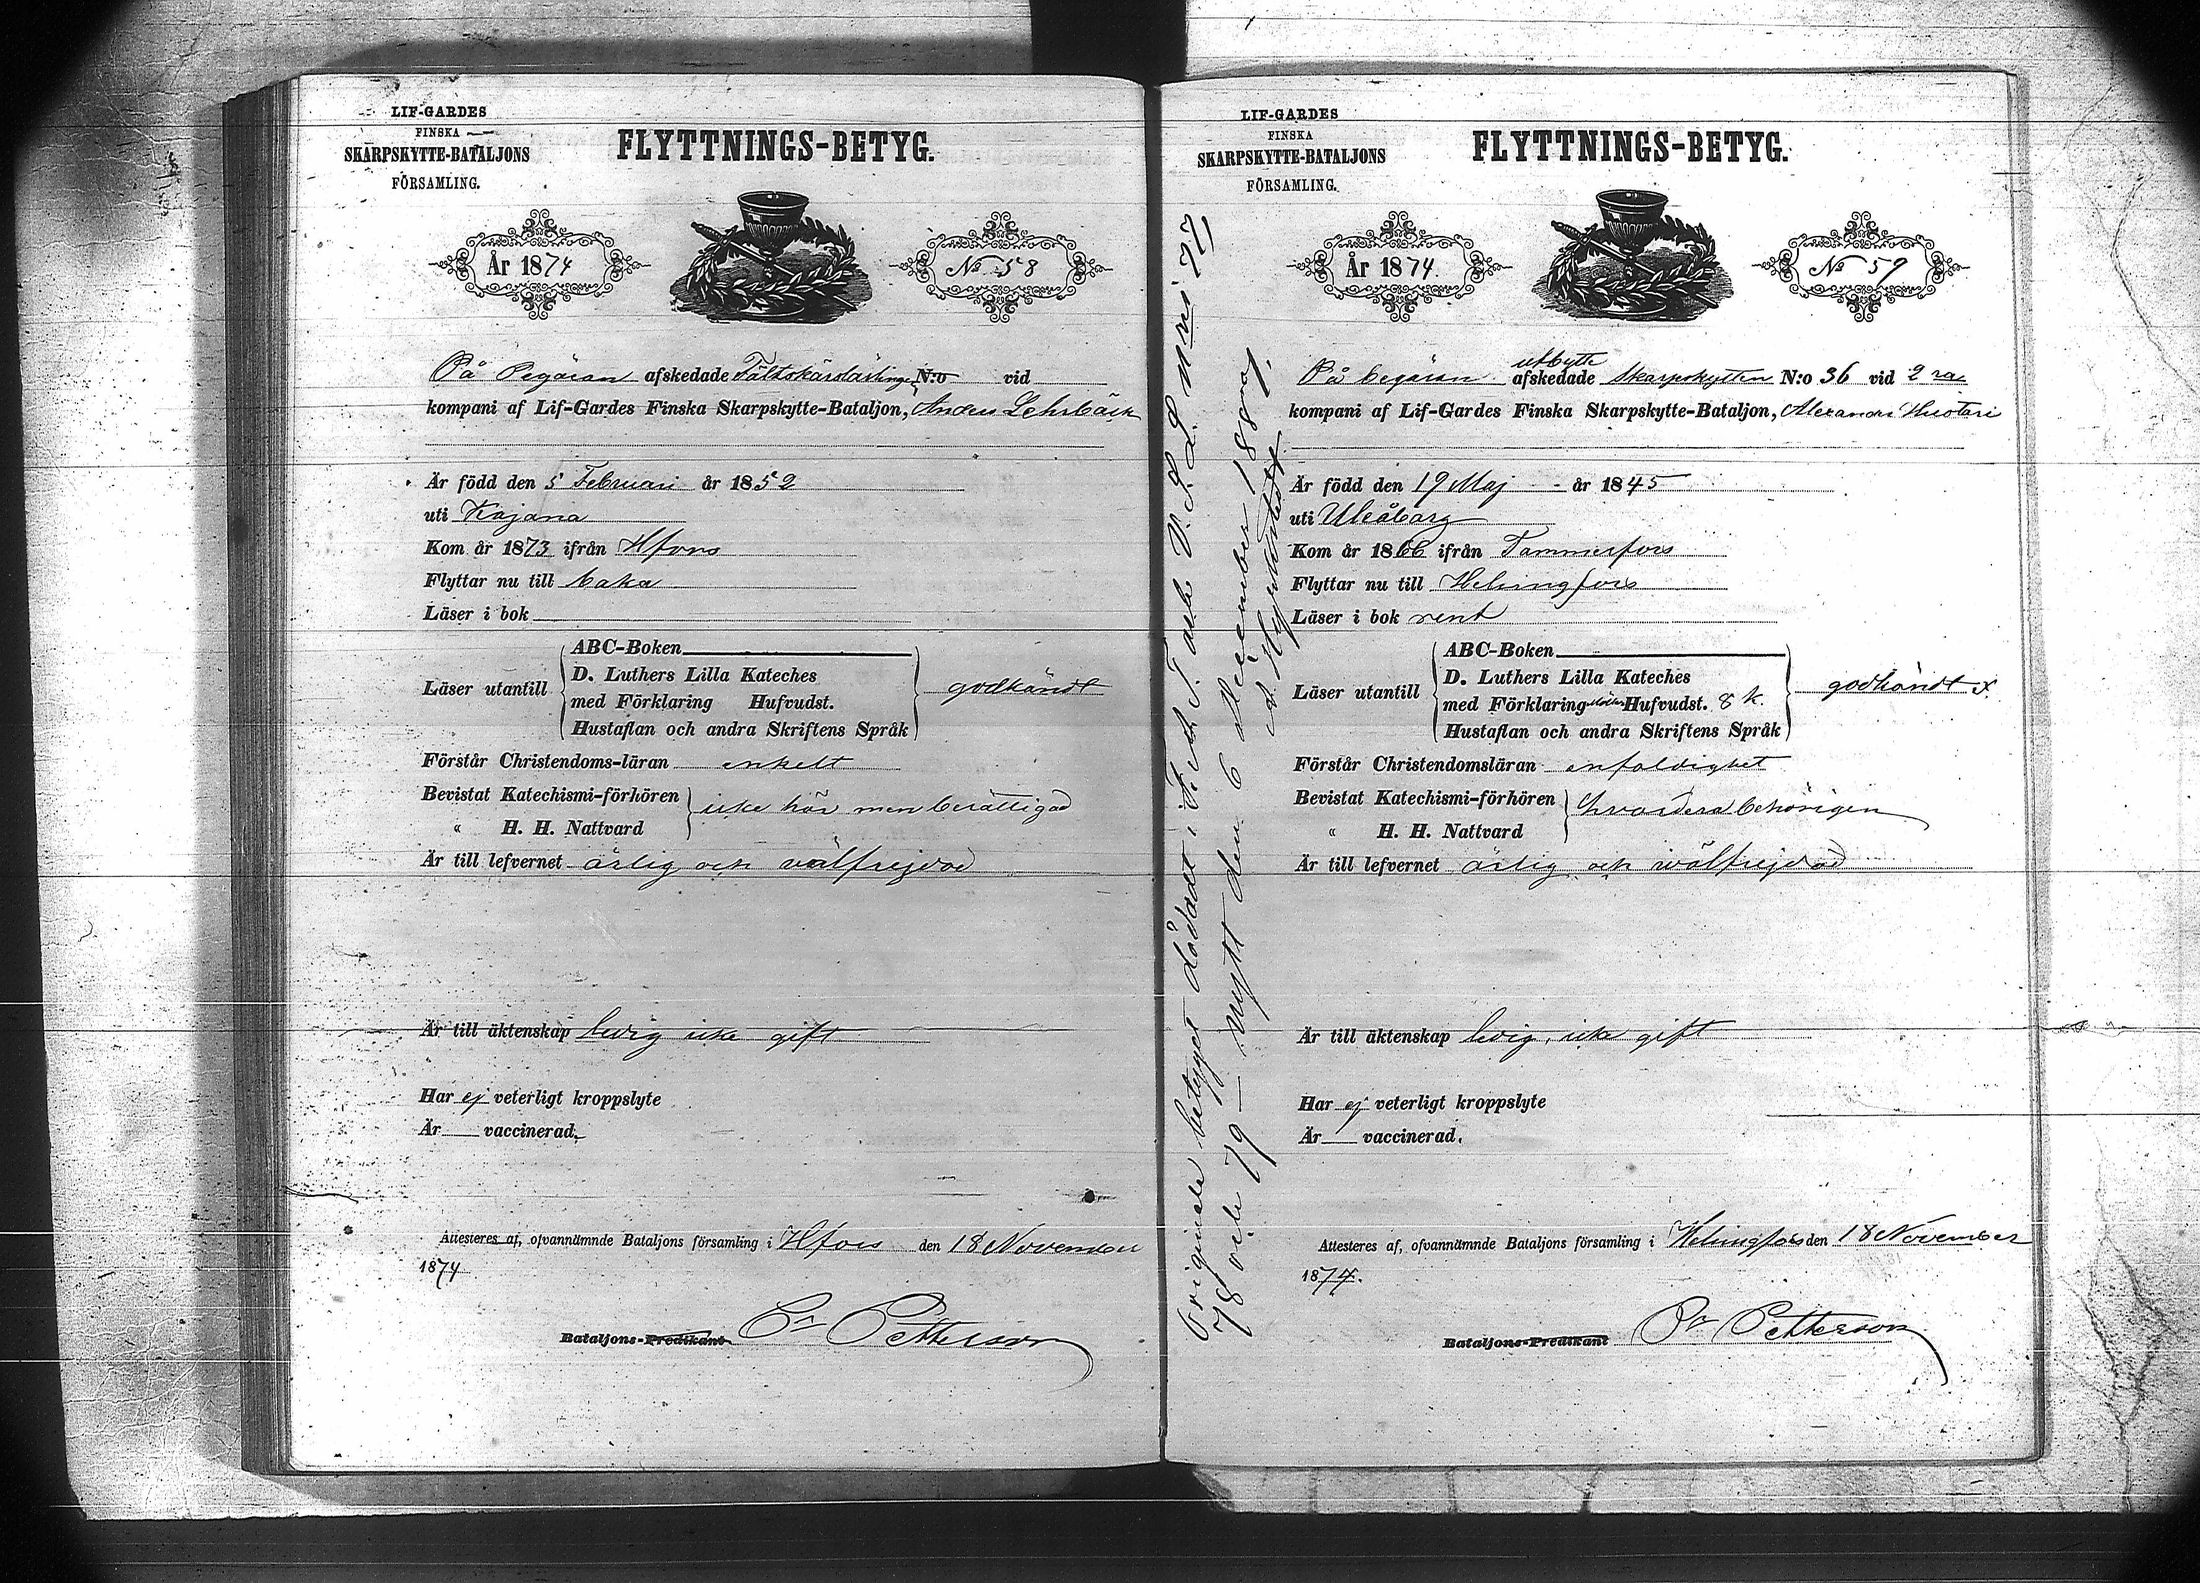 LIF-GARDES
FINSKA
SKARPSKYTTE-BATALJONS
FÖRSAMLING.
FLYTTNINGS-BETYG.
År 1874
No 58
På Begäran afskedade Fältskärslärlingen N:o vid
kompani af Lif-Gardes Finska Skarpskytte-Bataljon, Anders Lehrbäck
Är född den 5 Februari år 1852
uti Kajana
Kom år 1873 ifrån Hfors
Flyttar nu till
Läser i bok
Läser utantill
ABC-Boken
D. Luthers Lilla Kateches
med Förklaring Hufvudst.
Hustaflan och andra Skriftens Språk
godkändt
Förstår Christendoms-läran enkelt
Bevistat Katechismi-förhören
" H. H. Nattvard
icke här men berättigad
Är till lefvernet ärlig och välfrejdad
Är till äktenskap ledig icke gift
Har ej veterligt kroppslyte
Är vaccinerad.
Attesteres af, ofvannämnde Bataljons församling i Hfors den 18 November
1874
Bataljons-Predikant Petterson
LIF-GARDES
FINSKA
SKARPSKYTTE-BATALJONS
FÖRSAMLING.
FLYTTNINGS-BETYG.
År 1874.
No 59
utbytte
På begäran afskedade Skarpskytten N:o 36 vid 2 ra
kompani af Lif-Gardes Finska Skarpskytte-Bataljon, Alexander Huotari
Är född den 19 Maj år 1845
uti Uleåborg
Kom år 1866 ifrån Tammerfors
Flyttar nu till Helsingfors
Läser i bok rent
Läser utantill
ABC-Boken
D. Luthers Lilla Kateches
med Förklaring Hufvudst. 8 k.
Hustaflan och andra Skriftens Språk
godkändt
Förstår Christendomsläran enfaldighet
Bevistat Katechismi-förhören
" H. H. Nattvard
behörigen
Är till lefvernet ärlig och wälfrejdad
Är till äktenskap ledig, icke gift
Har ej veterligt kroppslyte
Är vaccinerad.
Attesteres af, ofvannämnde Bataljons församling i Helsingfors den 18 November
1874.
Bataljons-Predikant Petterson
Originale betyget dödadt i
78 och 79 — nytt den 6 December 188